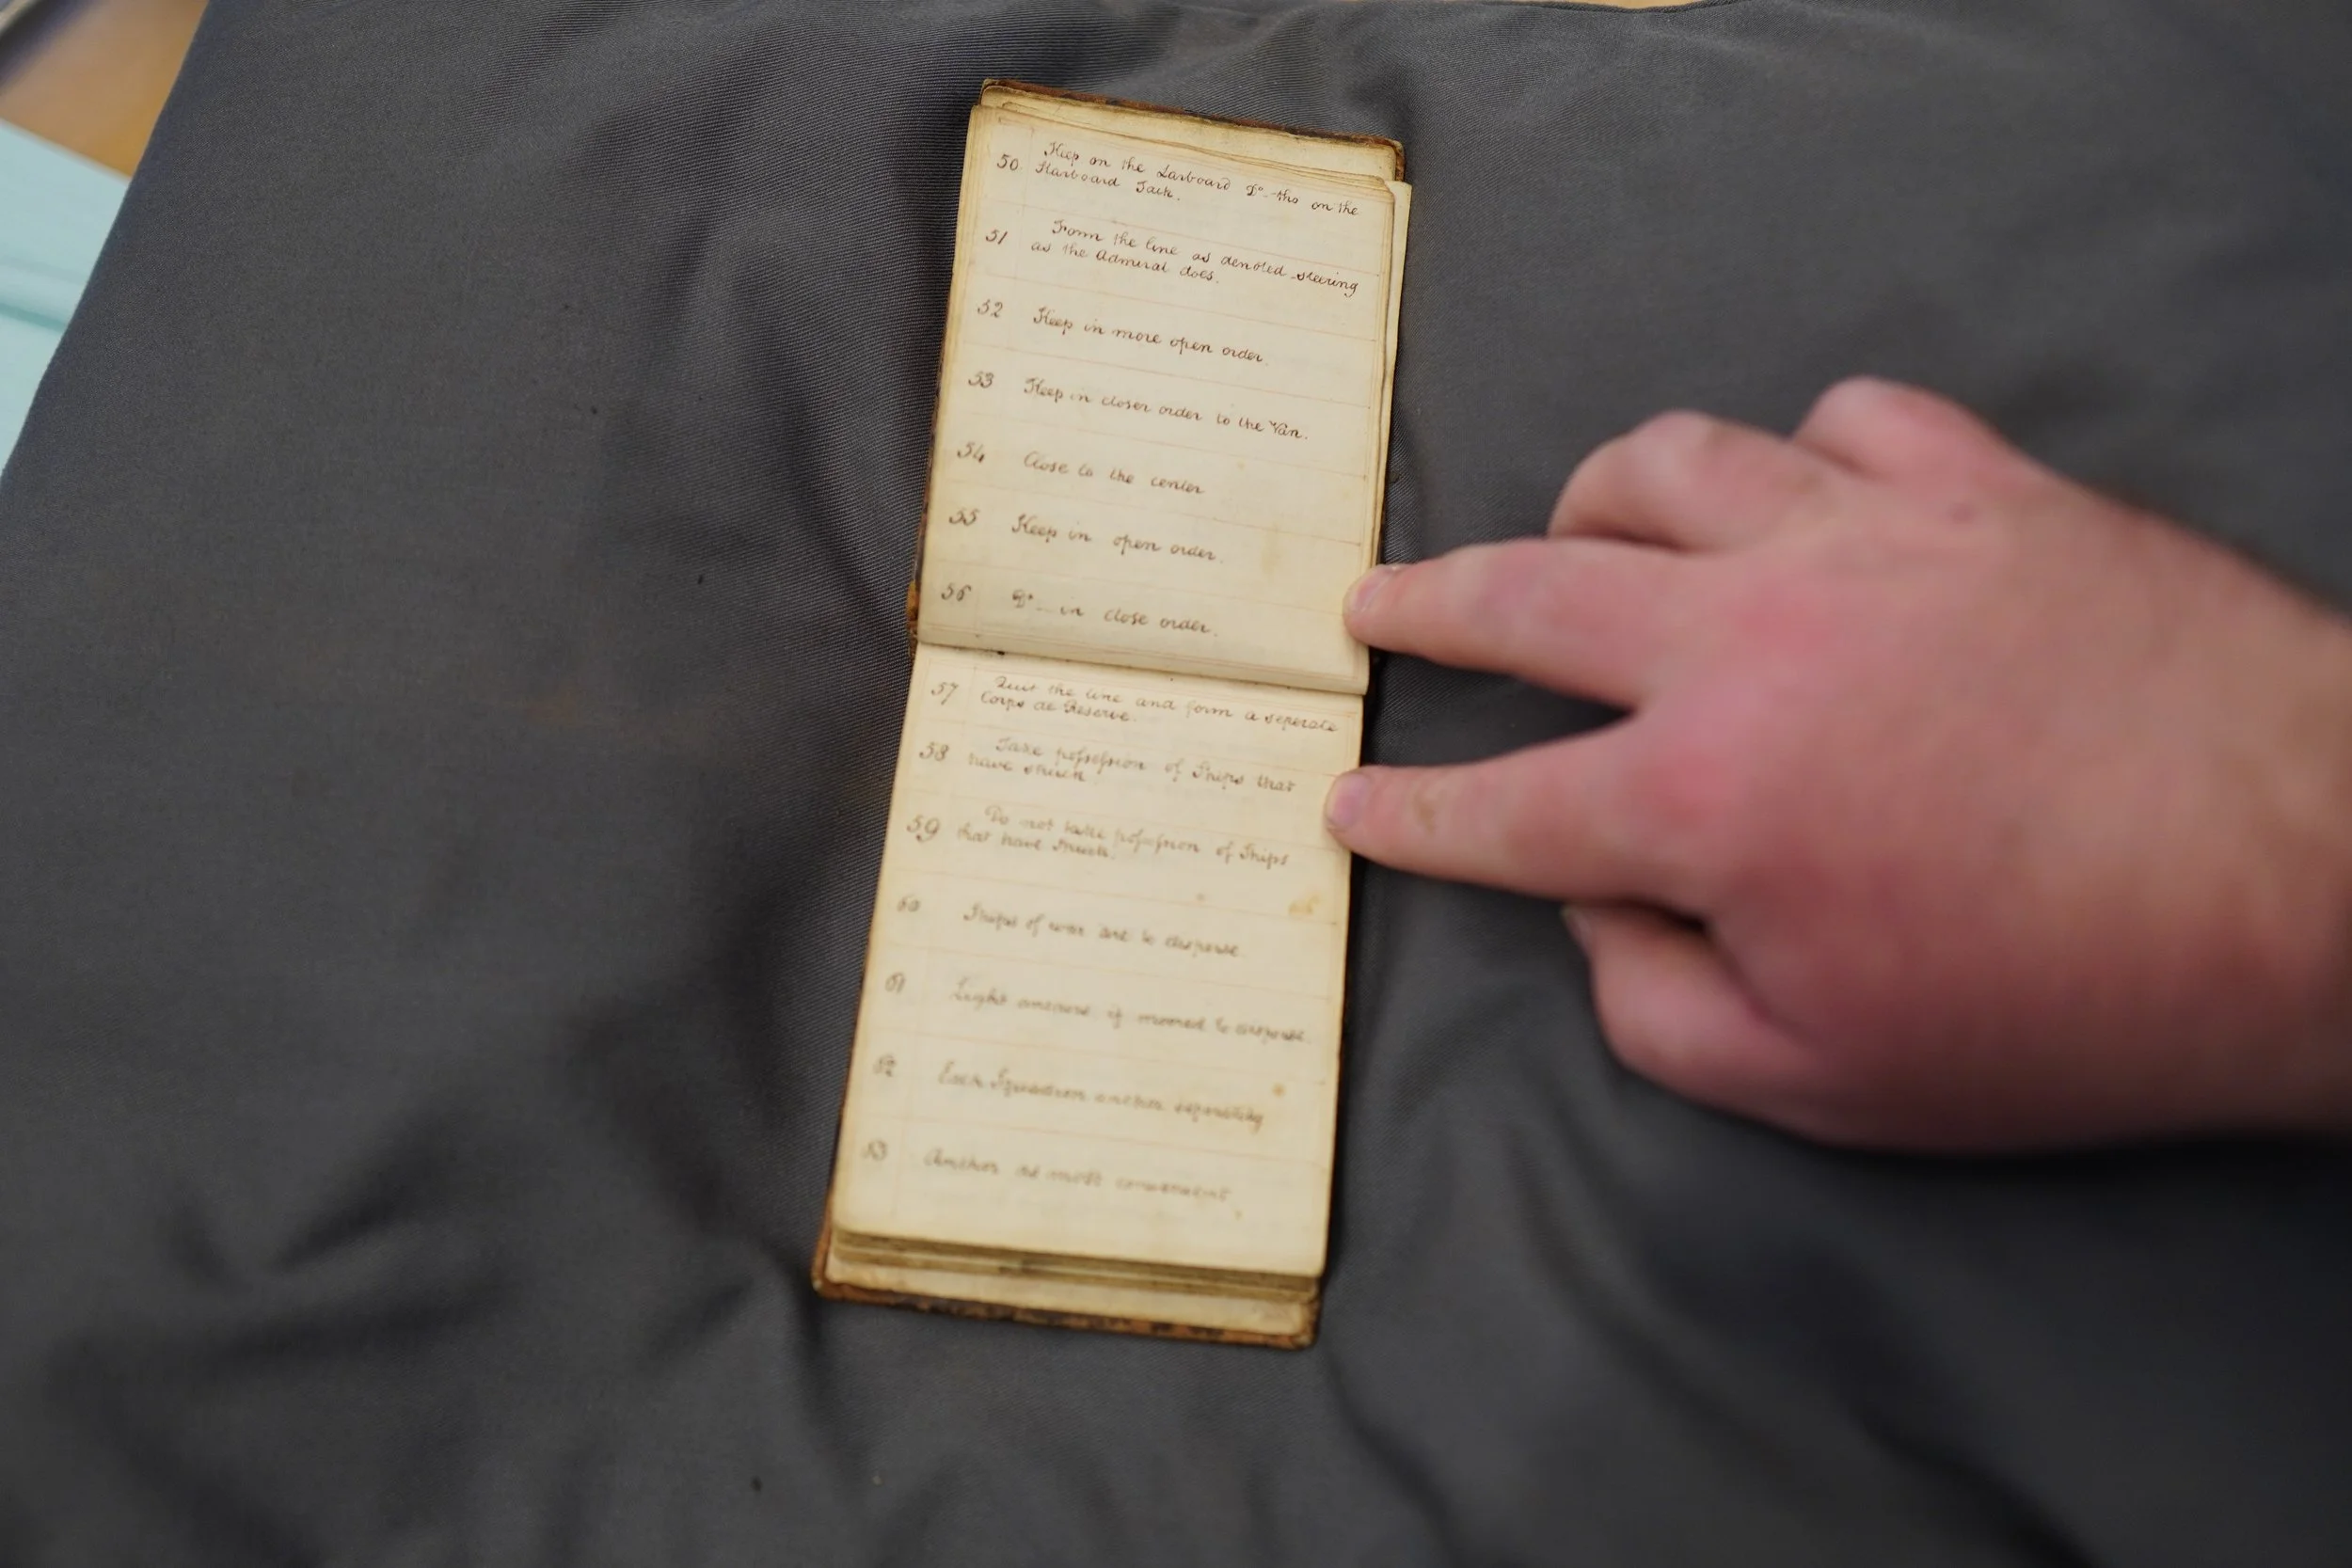 50 Keep on the Larboard Do. tho on the
Starboard Tack.
51 Form the line as denoted steering
as the Admiral does.
52 Keep in more open order.
53 Keep in closer order to the Van.
54 Close to the center
55 Keep in open order.
56 Do. in close order.
57 Quit the line and form a seperate
Corps de Reserve.
58 Take possession of Ships that
have struck
59 Do not take possession of Ships
that have struck.
60 Ships of war are to disperse.
61 Light if moored to disperse.
62 Each Squadron anchor separating
63 Anchor as most convenient